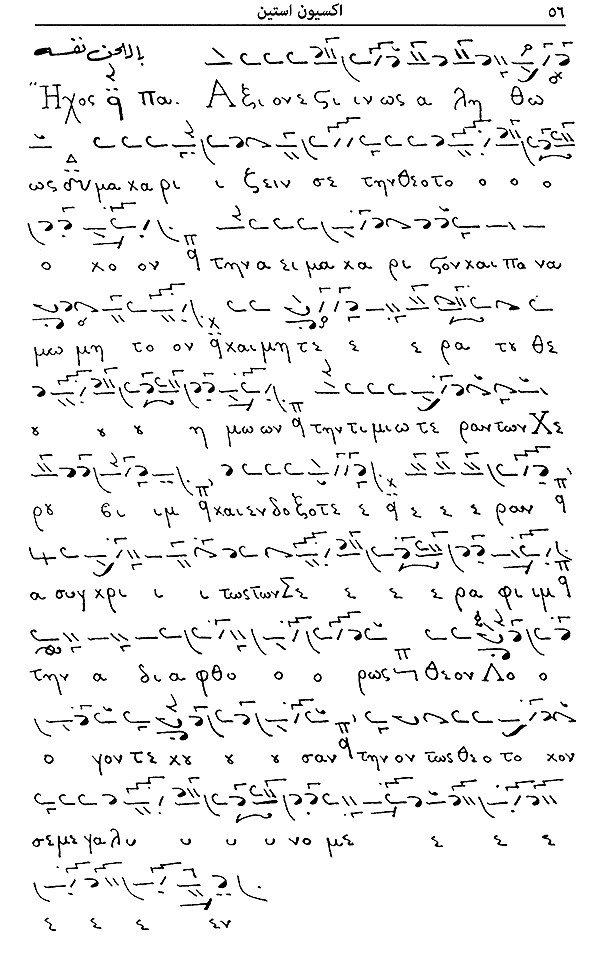 اكسيون استين ٥٦
باللحن نفسه
Ἦχος q̈ πα. Α ξι ον ε ςι ιν ως α λη θω
ως σὺ μα χα ρι ι ζειν σε την θε ο το ο ο ο
ο χο ον q την α ει μα χα ρι ζον και πα να
μω μη το ον q̈ και μη τε ε ε ρα τȣ θε
ȣ ȣ ȣ η μω ων q την τι μι ω τε ραν των Χε
ρȣ βι ιμ q και εν δο ξο τε ε q̈ ε ε ε ραν q
α συγ κρι ι ι τως των Σε ε ε ε ρα φι ιμ q
την α δι α φθο ο ο ρως θε ον Λο ο ο
ο γον τε κȣ ȣ ȣ σαν q την ον τως θε ο το κον
σε με γα λυ υ υ υ νο με ε ε ε
ε ε ε εν